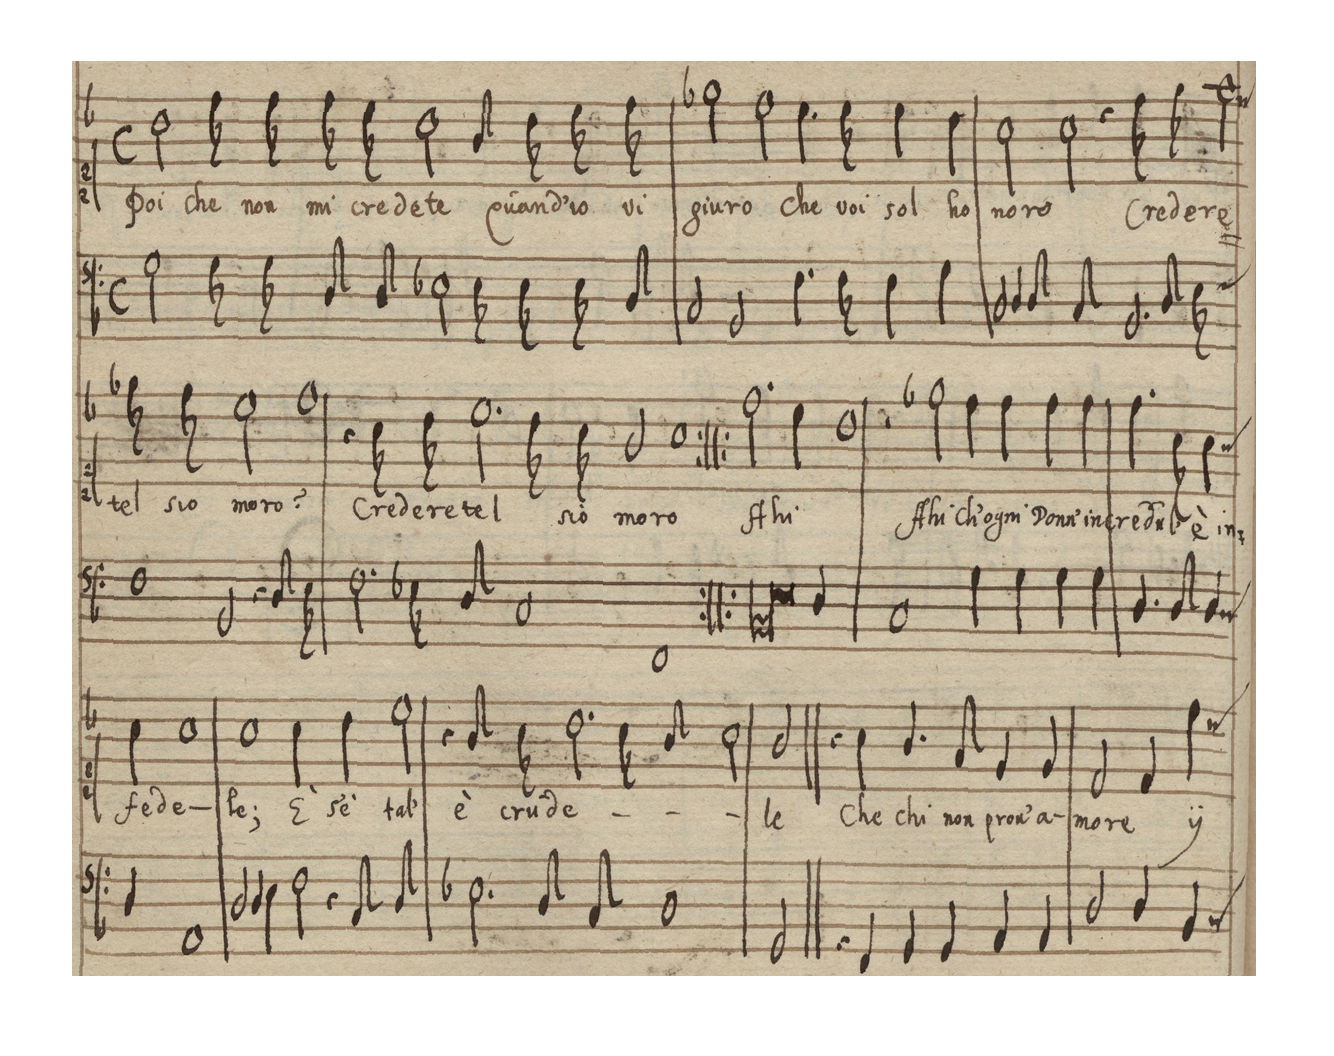 Poi che non mi credete quand'io vi giuro che voi sol ho noro Credere
tel sio moro? Crederetel sio moro Ahi Ahi ch'ogni Donn' incredul' è in
fede— le; E s'è tal' è crude - - - le Che chi non pron' a- more ij